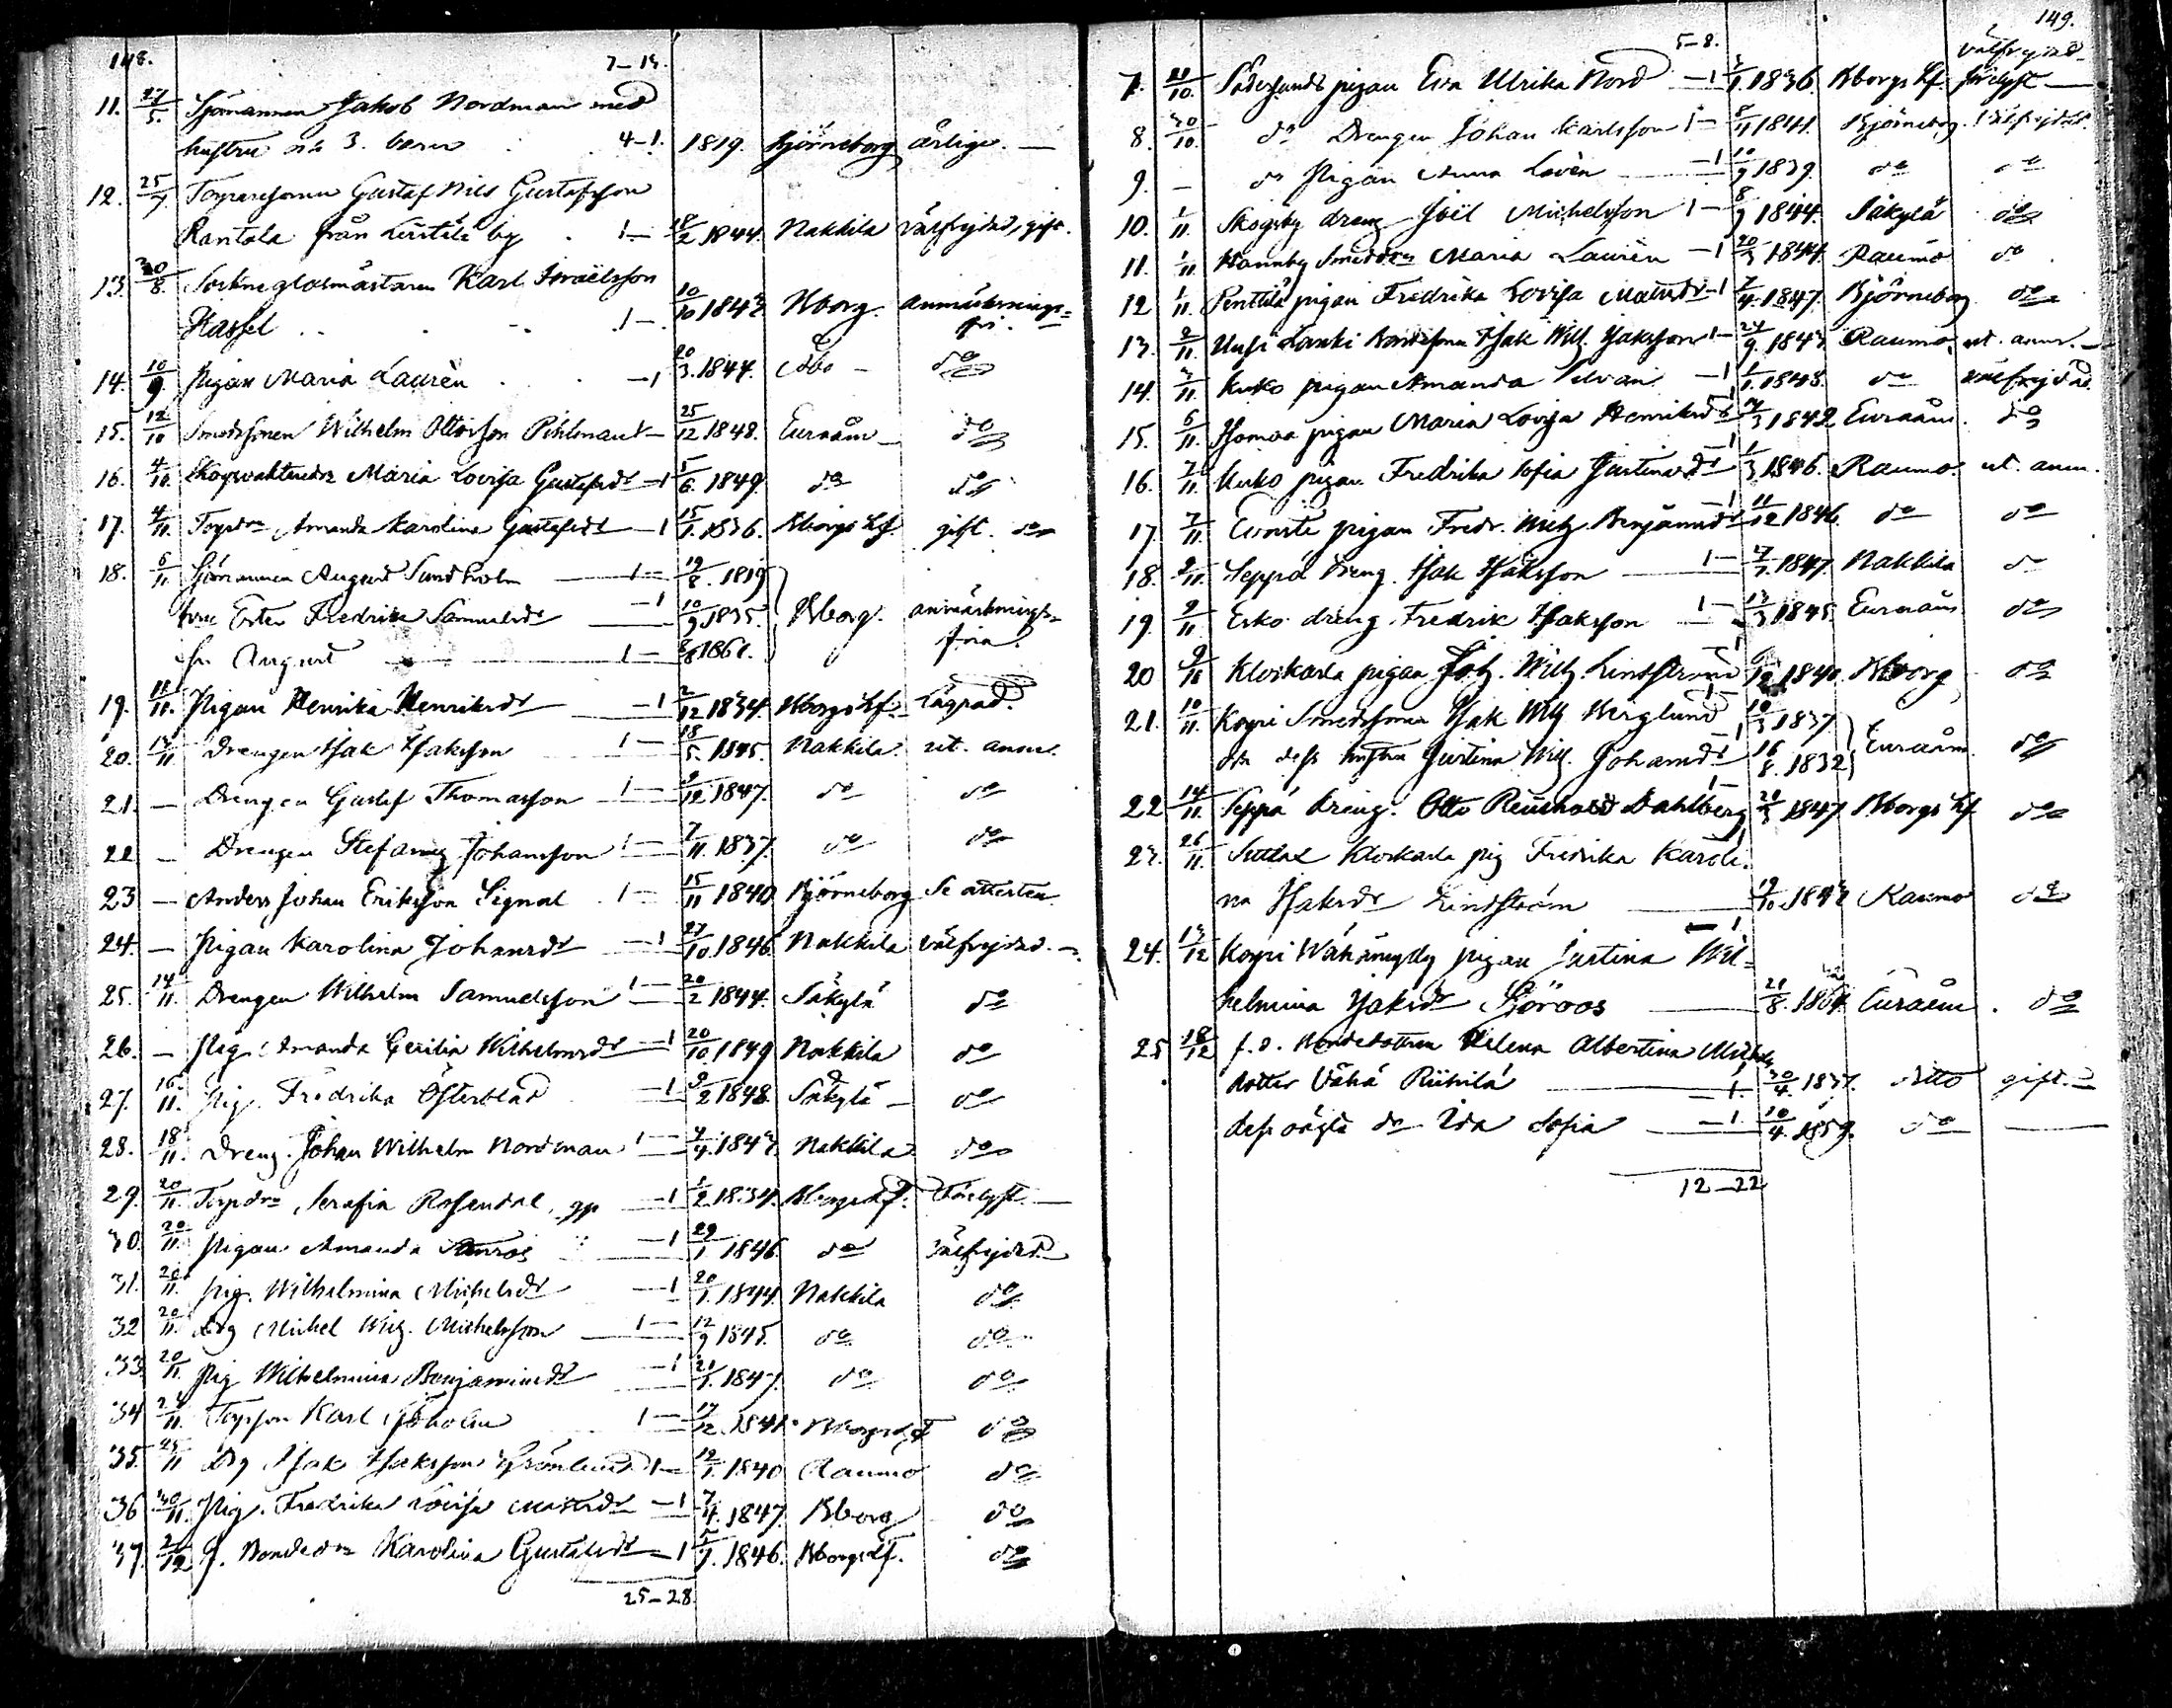 148.
7-14.
11. 27/5. Sjömannen Jakob Nordman med
hustru och 3. barn 4-1. 1819. Björneborg ärlige. —
12. 25/7 Torparesonen Gustaf Nils Gustafsson
Rantala från by 1— 18/2 1844. Nakkila välfrejdad, gift.
13. 20/8. Sockneglasmästaren Karl Israëlsson
Hassel 1—. 10/10 1843 Bborg. anmärknings=
fri.
14. 10/9. Pigan Maria Laurèn —1 20/3. 1844. Åbo — do
15. 12/10 Smedssonen Wilhelm Ottosson Pihlman 1— 25/12 1848. Euraåm — do
16. 4/10. Skogvaktaredr Maria Lovisa Gustafsdr —1 5/6. 1849. do do
17. 4/11. Torpdr Amanda Karolina Gustafsdr —1 15/1. 1836. Bborgs Lf. gift. do
18. 6/11 Sjömannen August Sundholm 1— 19/8. 1819
hru Ester Fredrika Samuelsdr —1 10/9 1835. Bborg. anmärknings=
sn August 1— /8 186 . fria.
19. 11/11. Pigan Henrika Henriksdr —1 2/12 1834. Bborgs Lf. Lägrad.
20. 13/11 Drengen Isak Isaksson 1— 18/5. 1845. Nakkila. ut. anm.
21. — Drengen Gustaf Thomasson 1— 9/12 1847. do do
22 — Drengen Stefanus Johansson 1— 7/11. 1837. do do
23 — Anders Johan Eriksson Signal 1— 15/11 1840 Björneborg Se attesten
24. — Pigan Karolina Johansdr —1 27/10. 1846. Nakkila välfrejdad. —
25. 14/11. Drengen Wilhelm Samuelsson 1— 20/2 1844. Säkylä do
26. — Pig. Amanda Cecilia Wilhelmsdr —1 20/10 1849 Nakkila do
27. 16/11. Pig. Fredrika Österblad —1 9/2 1848. Säkylä — do
28. 18/11. Dreng. Johan Wilhelm Nordman 1— 4/4. 1843 Nakkila do
29. 20/11. Torpdr Serafia Rosendal, —1 1/2 1834. Bborgs Lf. Förlyft —
30. 20/11. Pigan Amanda —1 29/1 1846 do välfrejdad
31. 20/11. Pig. Wilhelmina Michelsdr —1 20/1. 1844. Nakkila do
32 20/11. Drg Michel Wilh. Michelsson 1— 12/9 1845. do do
33 20/11. Pig Wilhelmina Benjaminsdr —1 21/1. 1847. do do
34 /11. Torpson Karl Sjöholm 1— 17/12. 1841. Bborgs Lf do
35. 25/11 Drg Isak Isaksson Grönlund 1— 12/1. 1840 Raumo do
36 30/11. Pig. Fredrika Lovisa Matsdr —1 7/4. 1847. Bborg do
37. /12 f. Bondedr Karolina Gustafsdr —1 5/7. 1846. Bborgs Lf. do
25-28.
149.
5-8.
välfrejdad
7. 21/10. Söderlunds pigan Eva Ulrika Nord —1 3/1. 1836. Bborgs Lf. förlyft —
8. 30/10. do Drengen Johan Karlsson 1— 5/11 1841. Björneborg. välfrejdad.
9. — do Pigan Anna Lovèn —1 10/9 1839. do do
10. 1/11. Skogsby dreng Joël Michelsson 1— 8/9 1844. Säkylä do
11. 1/11. Hannby Smeddr Maria Laurèn —1 20/3 1844. Raumo do.
12 1/11. Penttilä pigan Fredrika Lovisa Matsdr —1 7/4. 1847. Björneborg do
13. 2/11. Uusi Lanki Bondesonen Isak Wilh. Isaksson 1— 24/9. 1843. Raumo ut. anm. —
14. 3/11. Kuko pigan Amanda Silvan —1 1/1. 1848. do välfrejdad.
15. 6/11. Homoa pigan Maria Lovisa Henriksdr —1 14/3 1842 Euraåm. do
16. 7/11. Kuko pigan Fredrika Sofia Justinasdr —1 1/3 1846. Raumo. ut. anm.
17 7/11. pigan Fredr. Wilh. Benjaminsdr —1 11/12 1846 do do
18. 9/11. Seppä dreng. Isak Isaksson 1— 4/7. 1847. Nakkila do
19. 9/11. Esko dreng Fredrik Isaksson 1— 13/3 1845 Euraåm do
20 9/11 Klockarla pigan Joh. Wilh. Lindström —1 /12. 1840. Bborg do
21. 10/11. Korpi Smedssonen Isak Wilh Berglund 1— 10/3 1837
och dess hustru Justina Wilh. Johansdr —1 16/8. 1832 Euraåm. do
22 14/11. Seppä dreng. Otto Reinhold Dahlberg 1— 21/3 1847. Bborgs Lf do
23. 26/11. Klockarla pig Fredrika Karoli-
na Isaksdr Lindström —1 19/10. 1843 Raumo do
24. 13/12 Korpi Wähämylly pigan Justina Wil=
helmina Isaksdr Sjöroos 21/8. 18 Euraåm. do
25 18/12 f. d. Bondedottern Helena Albertina Michels
dotter Vähä Riihilä —1. 30/4. 1837. ditto gift. —
dess oägta dr Ida Sofia —1. 10/4. 1859. do —
12-22